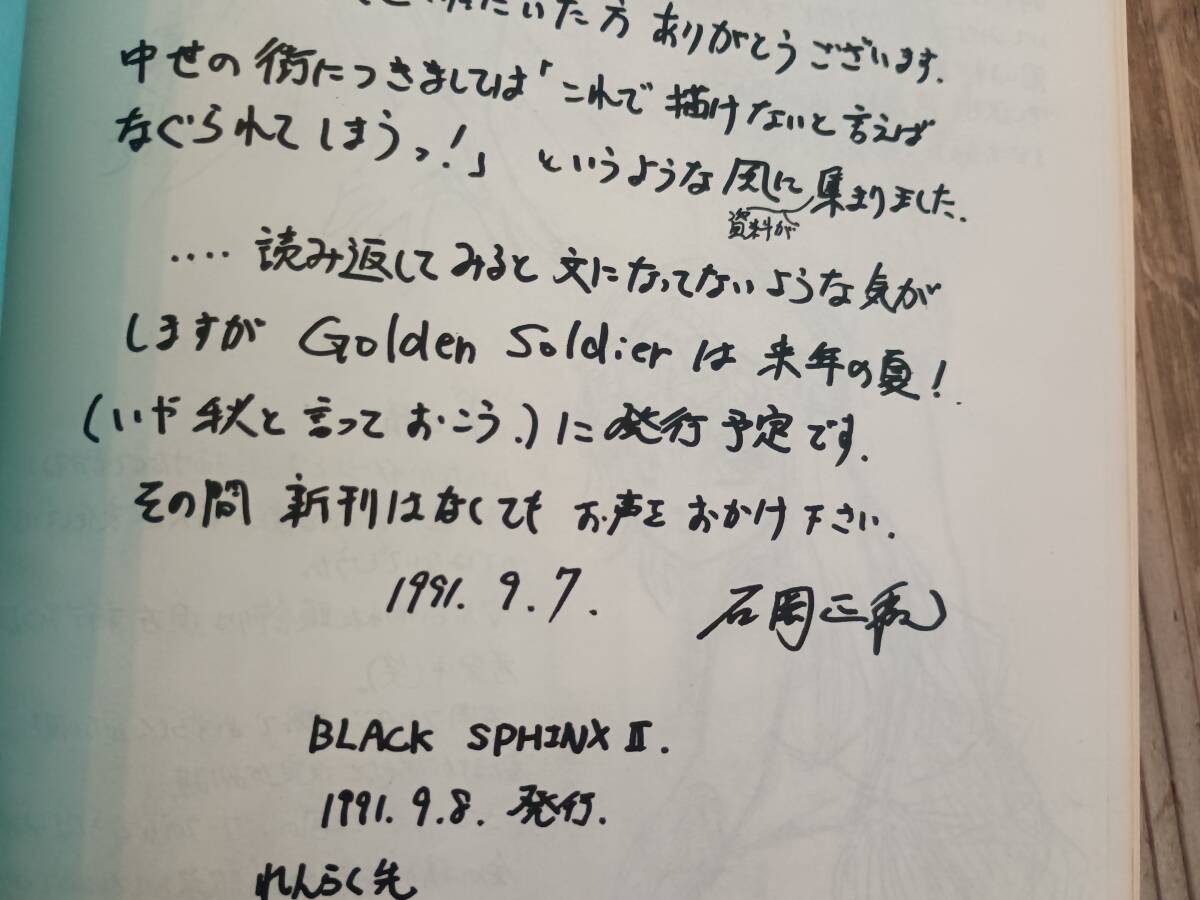 いた方 ありがとうございます.
中せの街につきましては「これで描けないと言えば
なぐられてしまうっ!」というような風に集まりました.
資料が
‥‥読み返してみると文になってないような気が
しますが Golden Soldier は来年の夏!
(いや秋と言っておこう.)に発行予定です.
その間 新刊はなくても お声をおかけ下さい.
1991. 9. 7. 石岡正
BLACK SPHINX Ⅱ.
1991. 9. 8. 発行.
れんらく先